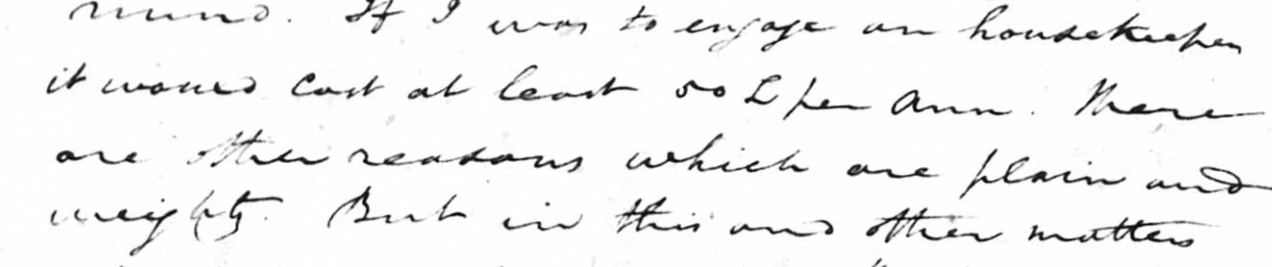 mind. If I was to engage an housekeeper
it would cost at least 50 L per Ann. There
are other reasons which are plain and
weighty. But in this and other matters